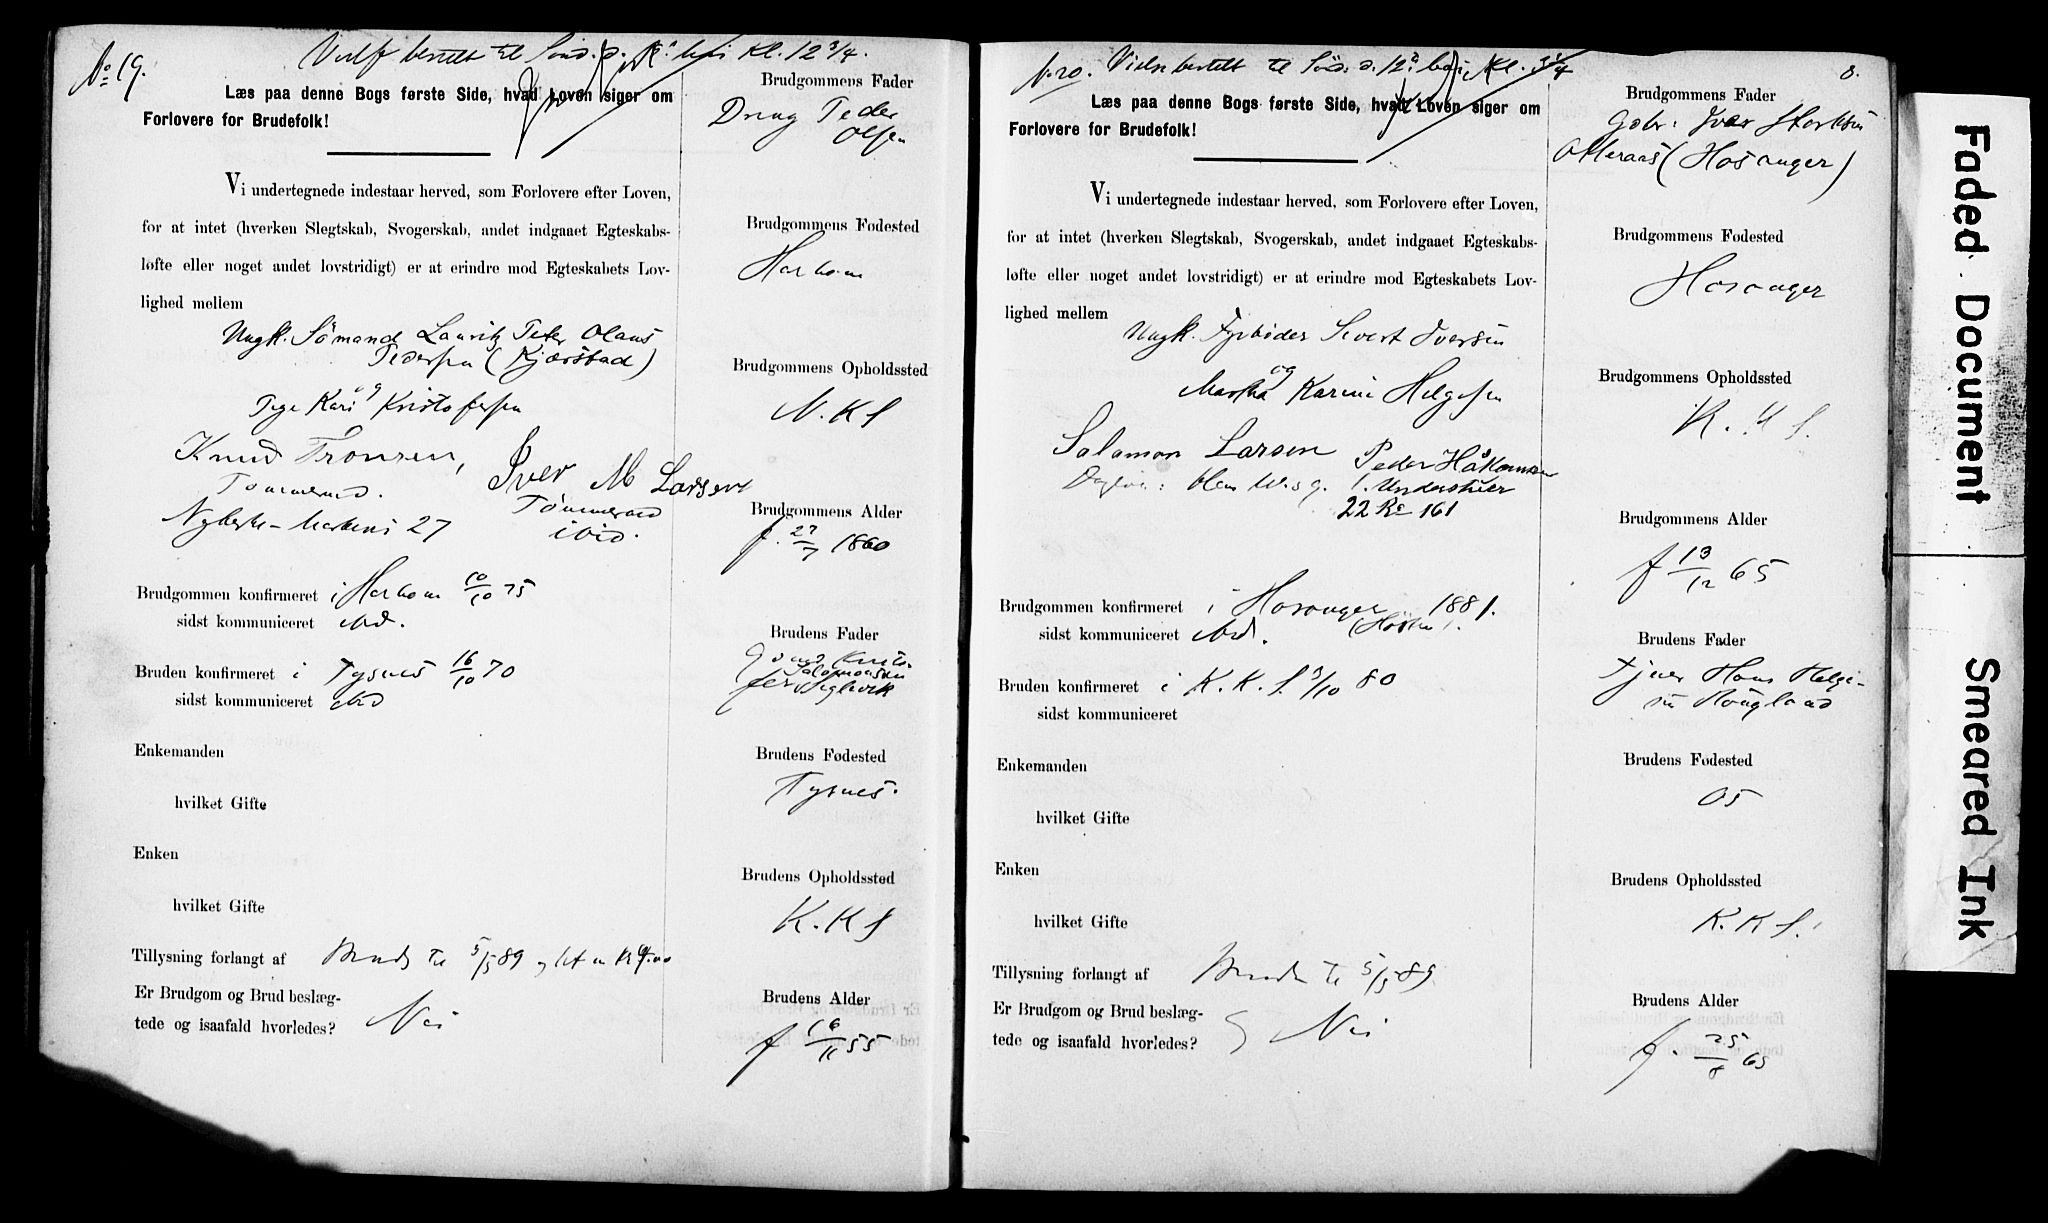 No 19.
Kl. 12 3/4.
Læs paa denne Bogs første Side, hvad Loven siger om
Forlovere for Brudefolk!
Vi undertegnede indestaar herved, som Forlovere efter Loven,
for at intet (hverken Slegtskab, Svogerskab, andet indgaaet Egteskabs-
løfte eller noget andet lovstridigt) er at erindre mod Egteskabets Lov-
lighed mellem
Ungk. Sömand Lauritz Peter Olaus
Pedersen (Kjærstad)
og
Pige Kari Kristofersen
Knud Tronsen,
Tømmermd.
27
Iver M Larsen
Tømmermd
ibid.
Brudgommen konfirmeret i 10/10 75
sidst kommuniceret
Bruden konfirmeret i Tysnes 16/10 70
sidst kommuniceret
Enkemanden
hvilket Gifte
Enken
hvilket Gifte
Tillysning forlangt af Brudg til 5/5 89
Er Brudgom og Brud beslæg-
tede og isaafald hvorledes? Nei
Brudgommens Fader
Peder
Olsen
Brudgommens Fødested
Brudgommens Opholdssted
N. K S
Brudgommens Alder
f. 27/7 1860
Brudens Fader
Salomonsen
Brudens Fødested
Tysnes.
Brudens Opholdssted
K. K S
Brudens Alder
f 16/11 55
8.
20. bestilt til 12 Kl. 3/4
Læs paa denne Bogs første Side, hvad Loven siger om
Forlovere for Brudefolk!
Vi undertegnede indestaar herved, som Forlovere efter Loven,
for at intet (hverken Slegtskab, Svogerskab, andet indgaaet Egteskabs-
løfte eller noget andet lovstridigt) er at erindre mod Egteskabets Lov-
lighed mellem
Ungk. Fyrbøder Sivert Iversen
og
Martha Karine Helgesen
Salamon Larsen
Peder Håkonsen
Understuer
22 Re 161
Brudgommen konfirmeret i Hosanger 1881.
sidst kommuniceret
Bruden konfirmeret i K. K. S. 3/10 80
sidst kommuniceret
Enkemanden
hvilket Gifte
Enken
hvilket Gifte
Tillysning forlangt af Brudg til 5/5 89
Er Brudgom og Brud beslæg-
tede og isaafald hvorledes? Nei
Brudgommens Fader
Iver
(Hosanger)
Brudgommens Fødested
Hosanger
Brudgommens Opholdssted
Brudgommens Alder
f 13/12 65
Brudens Fader
Hans Helge-
sen Hougland
Brudens Fødested
Os
Brudens Opholdssted
K. K S.
Brudens Alder
f. 25/8 65
Faded Document
Smeared Ink